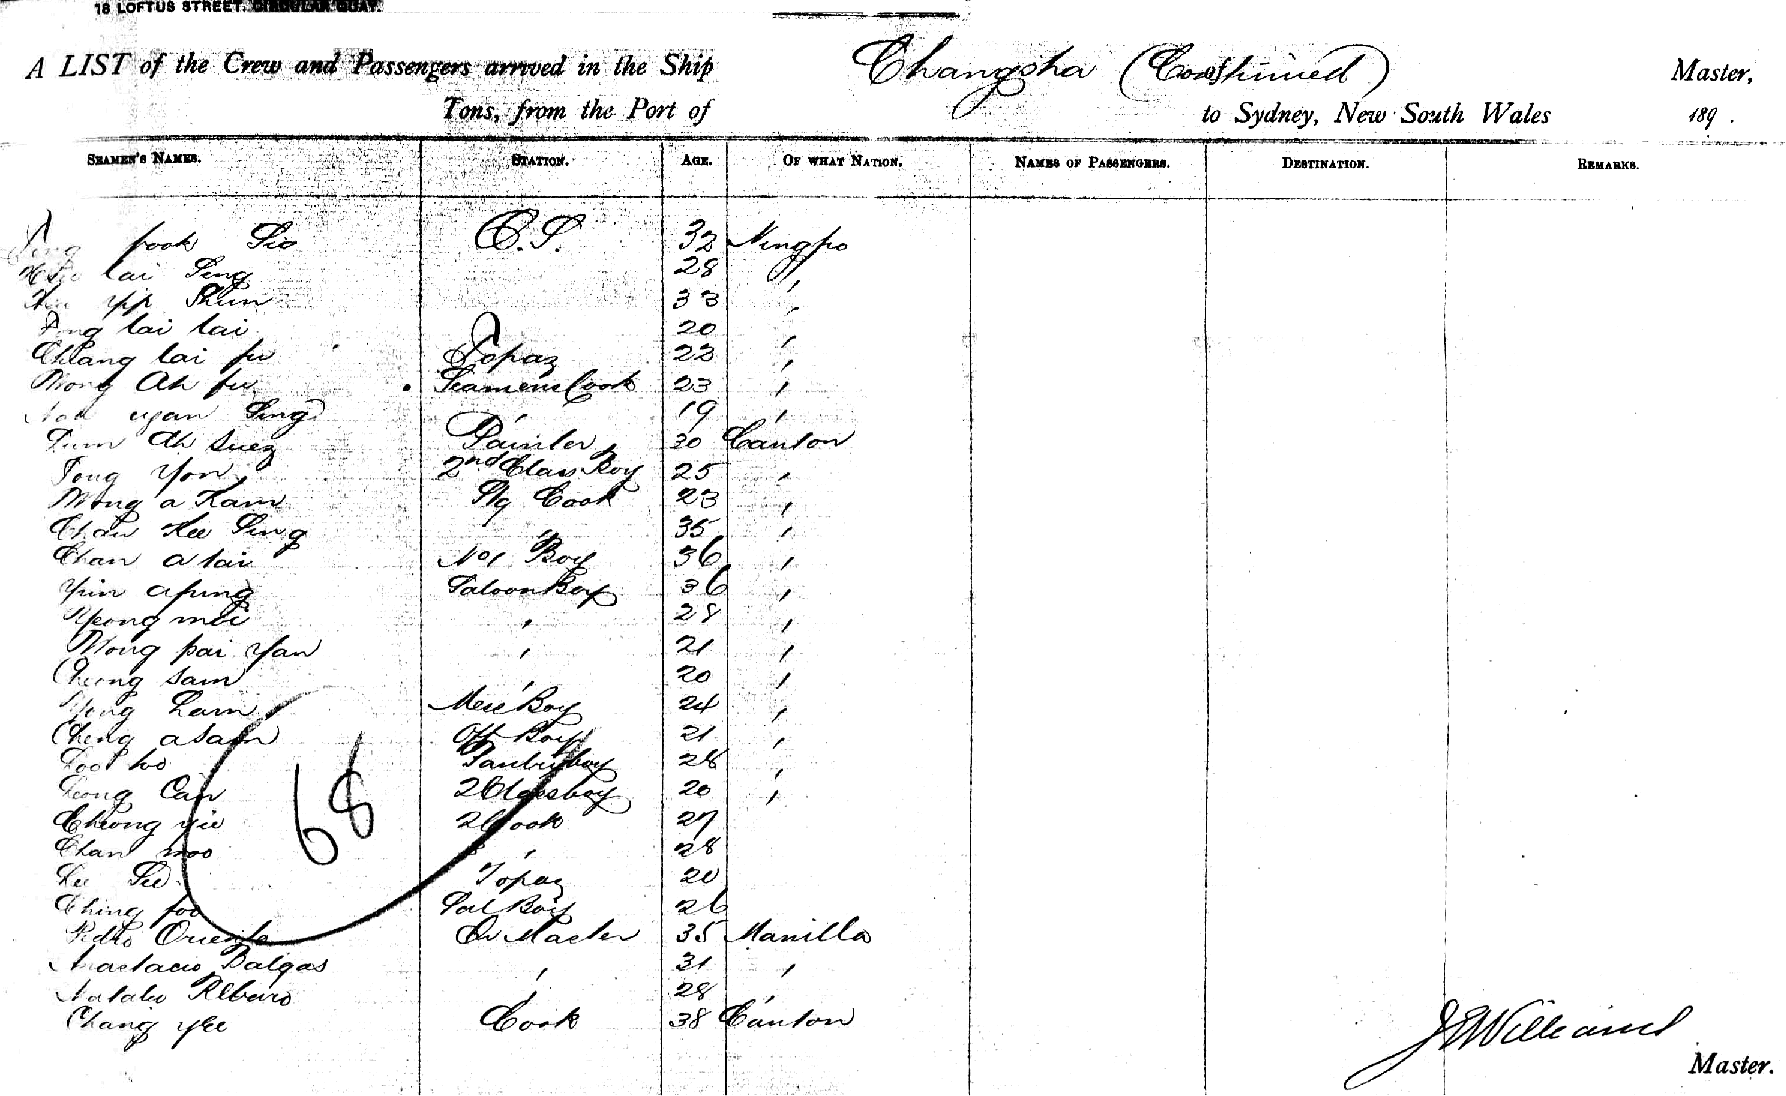 18 LOFTUS STREET, CIRCULAR QUAY.
A LIST of the Crew and Passengers arrived in the Ship Changsha (Continued) Master,
Tons, from the Port of to Sydney, New South Wales 189 .
SEAMEN'S NAMES. STATION. AGE. OF WHAT NATION. NAMES OF PASSENGERS. DESTINATION. REMARKS.
fook Sio C.S. 32 Ningpo
lai Sing 28 "
Yip Shun 33 "
lai lai 20 "
Chang lai fu Topaz 22 "
Wong Ah fu Seamens Cook 23 "
Sing " 19 "
Ah Suez Painter 30 Canton
Tong Yon 2nd Class Boy 25 "
Wong a Kam Cook 23 "
Chan Kee Sing " 35 "
Chan a tai No 1 Boy 36 "
Yim apung Saloon Boy 36 "
Kwong mei " 28 "
Wong pai Yan " 21 "
Cheong Sam " 20 "
Lam Mess Boy 24 "
Cheng asam Off Boy 21 "
Pantryboy 28 "
Leong Can 2 Classboy 20 "
Cheong yie 2 Cook 27
Chan moo " 28
68
Topaz 20
Ching foo Sal Boy 26
Pedro Oriente Qr Master 35 Manilla
Anastacio Balgas " 31 "
" 28 "
Chang Yee Cook 38 Canton
J Williams
Master.